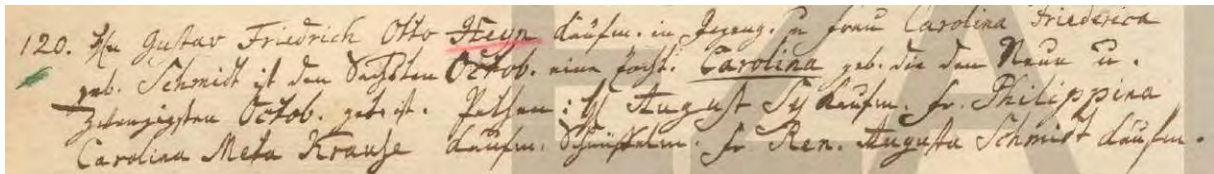 120. Hn Gustav Friedrich Otto Heyn Kaufm. in u Frau Carolina Friederica
geb. Schmidt ist den Sechsten Octob. eine Tocht. Carolina geb. die den Neun u.
Zwanzigsten Octob. get. ist. Pathen: H August Sy Kaufm. Fr. Philippina
Carolina Meta Krause Kaufm. Fr Ren. Augusta Schmidt Kaufm.